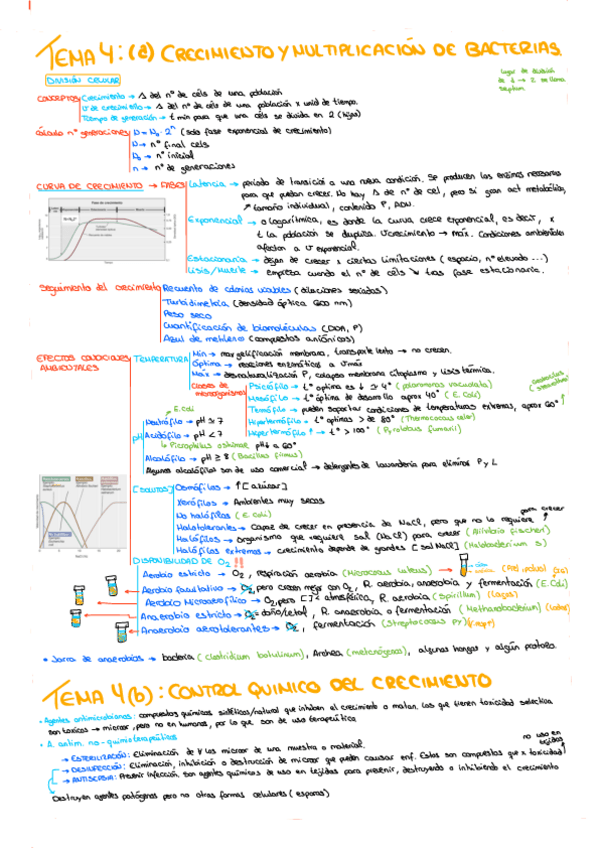 TEMA 4: (a) CRECIMIENTO Y MULTIPLICACIÓN DE BACTERIAS.
DIVISIÓN CELULAR
lugar de división de 1 → 2 se llama septum
CONCEPTOS Crecimiento → Δ del nº de céls de una población
U de crecimiento → Δ del nº de céls de una población x unid de tiempo.
Tiempo de generación → t min para que una cels se divida en 2 (hijas)
Cálculo nº generaciones N = N₀ · 2ⁿ (solo fase exponencial de crecimiento)
N → nº final cels
N₀ → nº inicial
n → nº de generaciones
CURVA DE CRECIMIENTO → FASES Latencia → periodo de transición a una nueva condición. Se producen las enzimas necesarias
para que puedan crecer. No hay Δ de nº de cel, pero sí gran act metabólica,
↗ tamaño individual, contenido P, ADN.
Exponencial → o logarítmica, es donde la curva crece exponencial, es decir, x
t la población se duplica. U crecimiento → máx. Condiciones ambientales
afectan a U exponencial.
Estacionaria → dejan de crecer x ciertas limitaciones (espacio, nº elevado ...)
Lisis/Muerte → empieza cuando el nº de céls ↘ tras fase estacionaria.
Seguimiento del crecimiento Recuento de colonias viables (diluciones seriadas)
Turbidimetría (densidad óptica 600 nm)
Peso seco
Cuantificación de biomoléculas (DNA, P)
Azul de metileno (compuestos aniónicos)
EFECTOS CONDICIONES AMBIENTALES
TEMPERATURA Mín → max gelificación membrana, transporte lento → no crecen.
Óptima → reacciones enzimáticas a U máx
Máx → desnaturalización P, colapso membrana citoplasma y lisis térmica.
Clases de microorganismos
Psicrófilo → tª óptima es ↓ 4º (polaromonas vacuolata)
Mesófilo → tª óptima de desarrollo aprox 40º (E. Coli)
Termófilo → pueden soportar condiciones de temperaturas extremas, aprox 60º
Hipertermófilo → tª optimas > de 80º (Thermococcus celer)
Hipertermófilo ↑ → tª > 100º (Pyrolobus fumarii)
E.coli
pH Neutrófilo → pH ≃ 7
Acidófilo → pH < 7
Picrophilus oshimae pH↓ a 60º
Alcalófilo → pH ≥ 8 (Bacillus firmus)
Algunos alcalófilo son de uso comercial → detergentes de lavandería para eliminar P y L
[SOLUTOS] Osmófilos → ↑[azúcar]
Xerófilos → Ambientes muy secos
No halófilos (E. Coli)
Halotolerantes → Capaz de crecer en presencia de NaCl, pero que no lo requiere para crecer
Halófilos → organismo que requiere sal (NaCl) para crecer (Aliivibrio fischeri)
Halófilos extremos → crecimiento depende de grandes [sal NaCl] (Halobacterium s)
DISPONIBILIDAD DE O₂ !!
Aerobio estricto → O₂, respiración aerobia (Micrococcus luteus)
Aerobio facultativo → O₂, pero crecen mejor con O₂, R. aerobia, anaerobia y fermentación (E. Coli)
Aerobio Microaerofílico → O₂, pero [ ] < atmosférica, R. aerobia (Spirillum) (Lagos)
Anaerobio estricto → O₂ = daño/letal, R. anaerobia o fermentación (Methanobacterium)
Anaerobio aerotolerantes → O₂, fermentación (Streptococcus Py)
• Jarra de anaerobios → bacteria (clostridium botulinum), Archea (metanógeno), algunos hongos y algún protozo.
TEMA 4(b): CONTROL QUIMICO DEL CRECIMIENTO
• Agentes antimicrobianos: compuestos químicos sintéticos/natural que inhiben el crecimiento o matan. Los que tienen toxicidad selectiva
son toxicos → microor, pero no en humanos, por lo que son de uso terapéutico.
• A. antim no-quimioterapéuticos
no uso en tejidos
→ ESTERILIZACIÓN: Eliminación de los microor de una muestra o material.
→ DESINFECCIÓN: Eliminación, inhibición o destrucción de microor que puedan causar enf. Estos son compuestos que x toxicidad
→ ANTISEPSIA: Prevenir infección, son agentes químicos de uso en tejidos para prevenir, destruyendo o inhibiendo el crecimiento
Destruyen agentes patógenos pero no otras formas celulares (esporas)